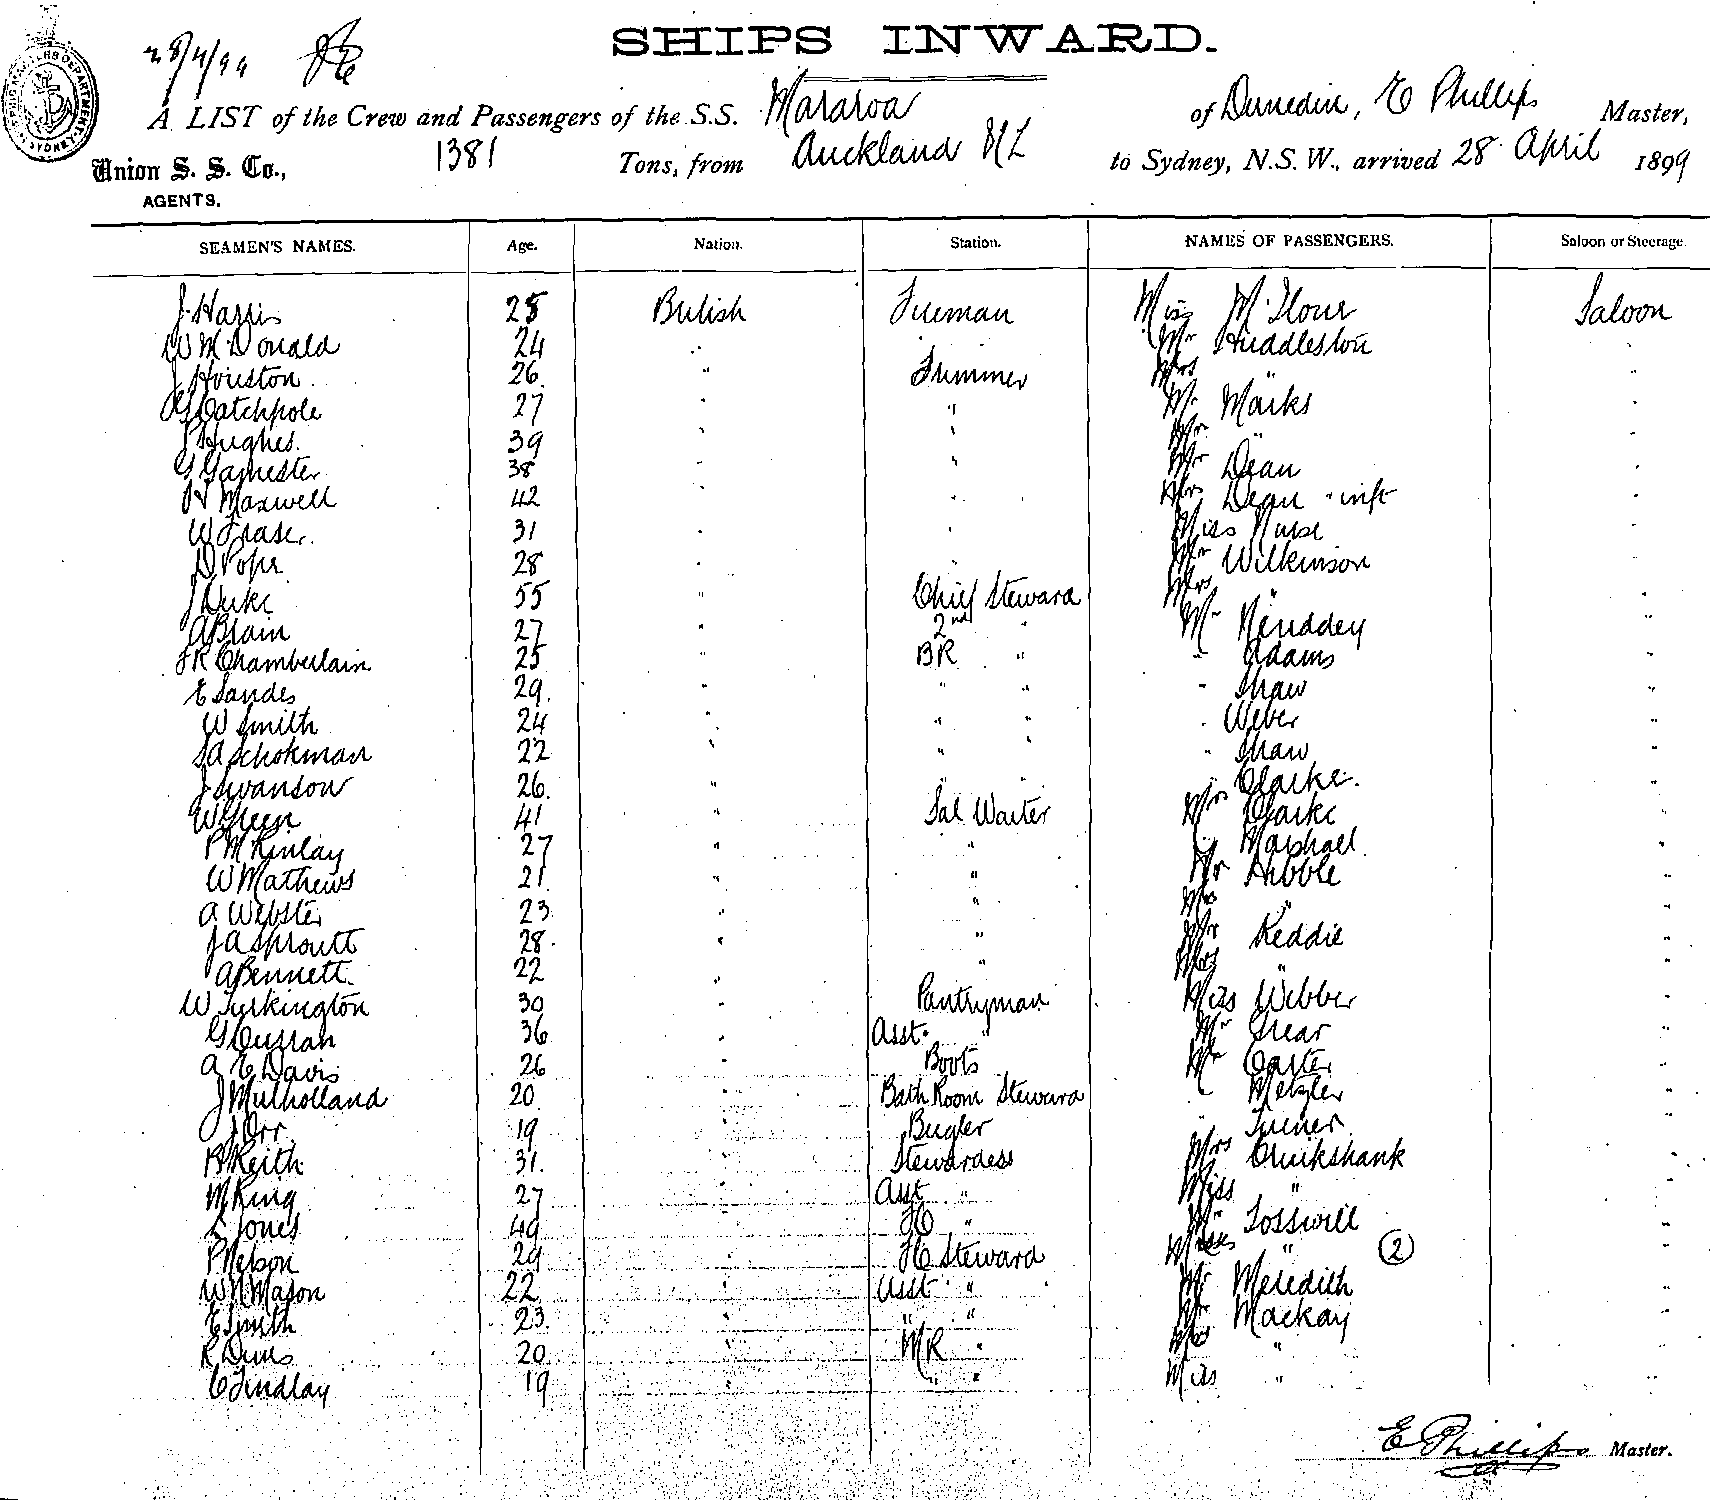 28/4/99
SHIPS INWARD.
A LIST of the Crew and Passengers of the S.S. Mararoa of Dunedin, E Phillips Master,
Union S. S. Co., 1381 Tons, from Auckland NZ to Sydney, N.S.W., arrived 28 April 1899
AGENTS.
SEAMEN'S NAMES. Age. Nation. Station. NAMES OF PASSENGERS. Saloon or Steerage.
J Harris 25 British Fireman Miss Saloon
W McDonald 24 " Mr Huddleston "
J Houston 26 " Trimmer Mrs " "
Catchpole 27 " " Mr Marks "
J Hughes 39 " " Mrs "
G Gamester 38 " " Mr Dean "
H Maxwell 42 " " Mrs Dean inft "
W Fraser 31 " " Miss Nurse "
D Pope 28 " " Mr Wilkinson "
J Duke 55 " Chief Steward Mrs " "
A Blain 27 " 2nd " Mr "
J R Chamberlain 25 " BR " " Adams "
E Sandes 29 " " " " Shaw "
W Smith 24 " " " " Weber "
S A Schokman 22 " " " " Shaw "
J Swanson 26 " " " " Clarke "
W Green 41 " Sal Waiter Mrs Clarke "
P McKinlay 27 " " " Marshall "
W Mathews 21 " " Mr Hibble "
A Webster 23 " " Mrs " "
J A Sproutt 28 " " Mr Keddie "
A Bennett 22 " " Mrs " "
W Turkington 30 " Pantryman Miss Webber "
G Curran 36 " Asst. " Mr Grear "
A E Davis 26 " Boots Mr Carter "
J Mulholland 20 " Bath Room Steward " Metzler "
J Orr 19 " Bugler " Turner "
B Keith 31 " Stewardess Mrs Cruikshank "
M King 27 " Asst " Miss " "
L Jones 49 " FC " Mr Tosswill "
P Nelson 29 " FC Steward Misses " (2) "
W N Mason 22 " Asst " Mr Meredith "
E Smith 23 " " " Mr Mackay "
R 20 " MR " Mrs " "
C Findlay 19 " " " Miss " "
E Phillips Master.